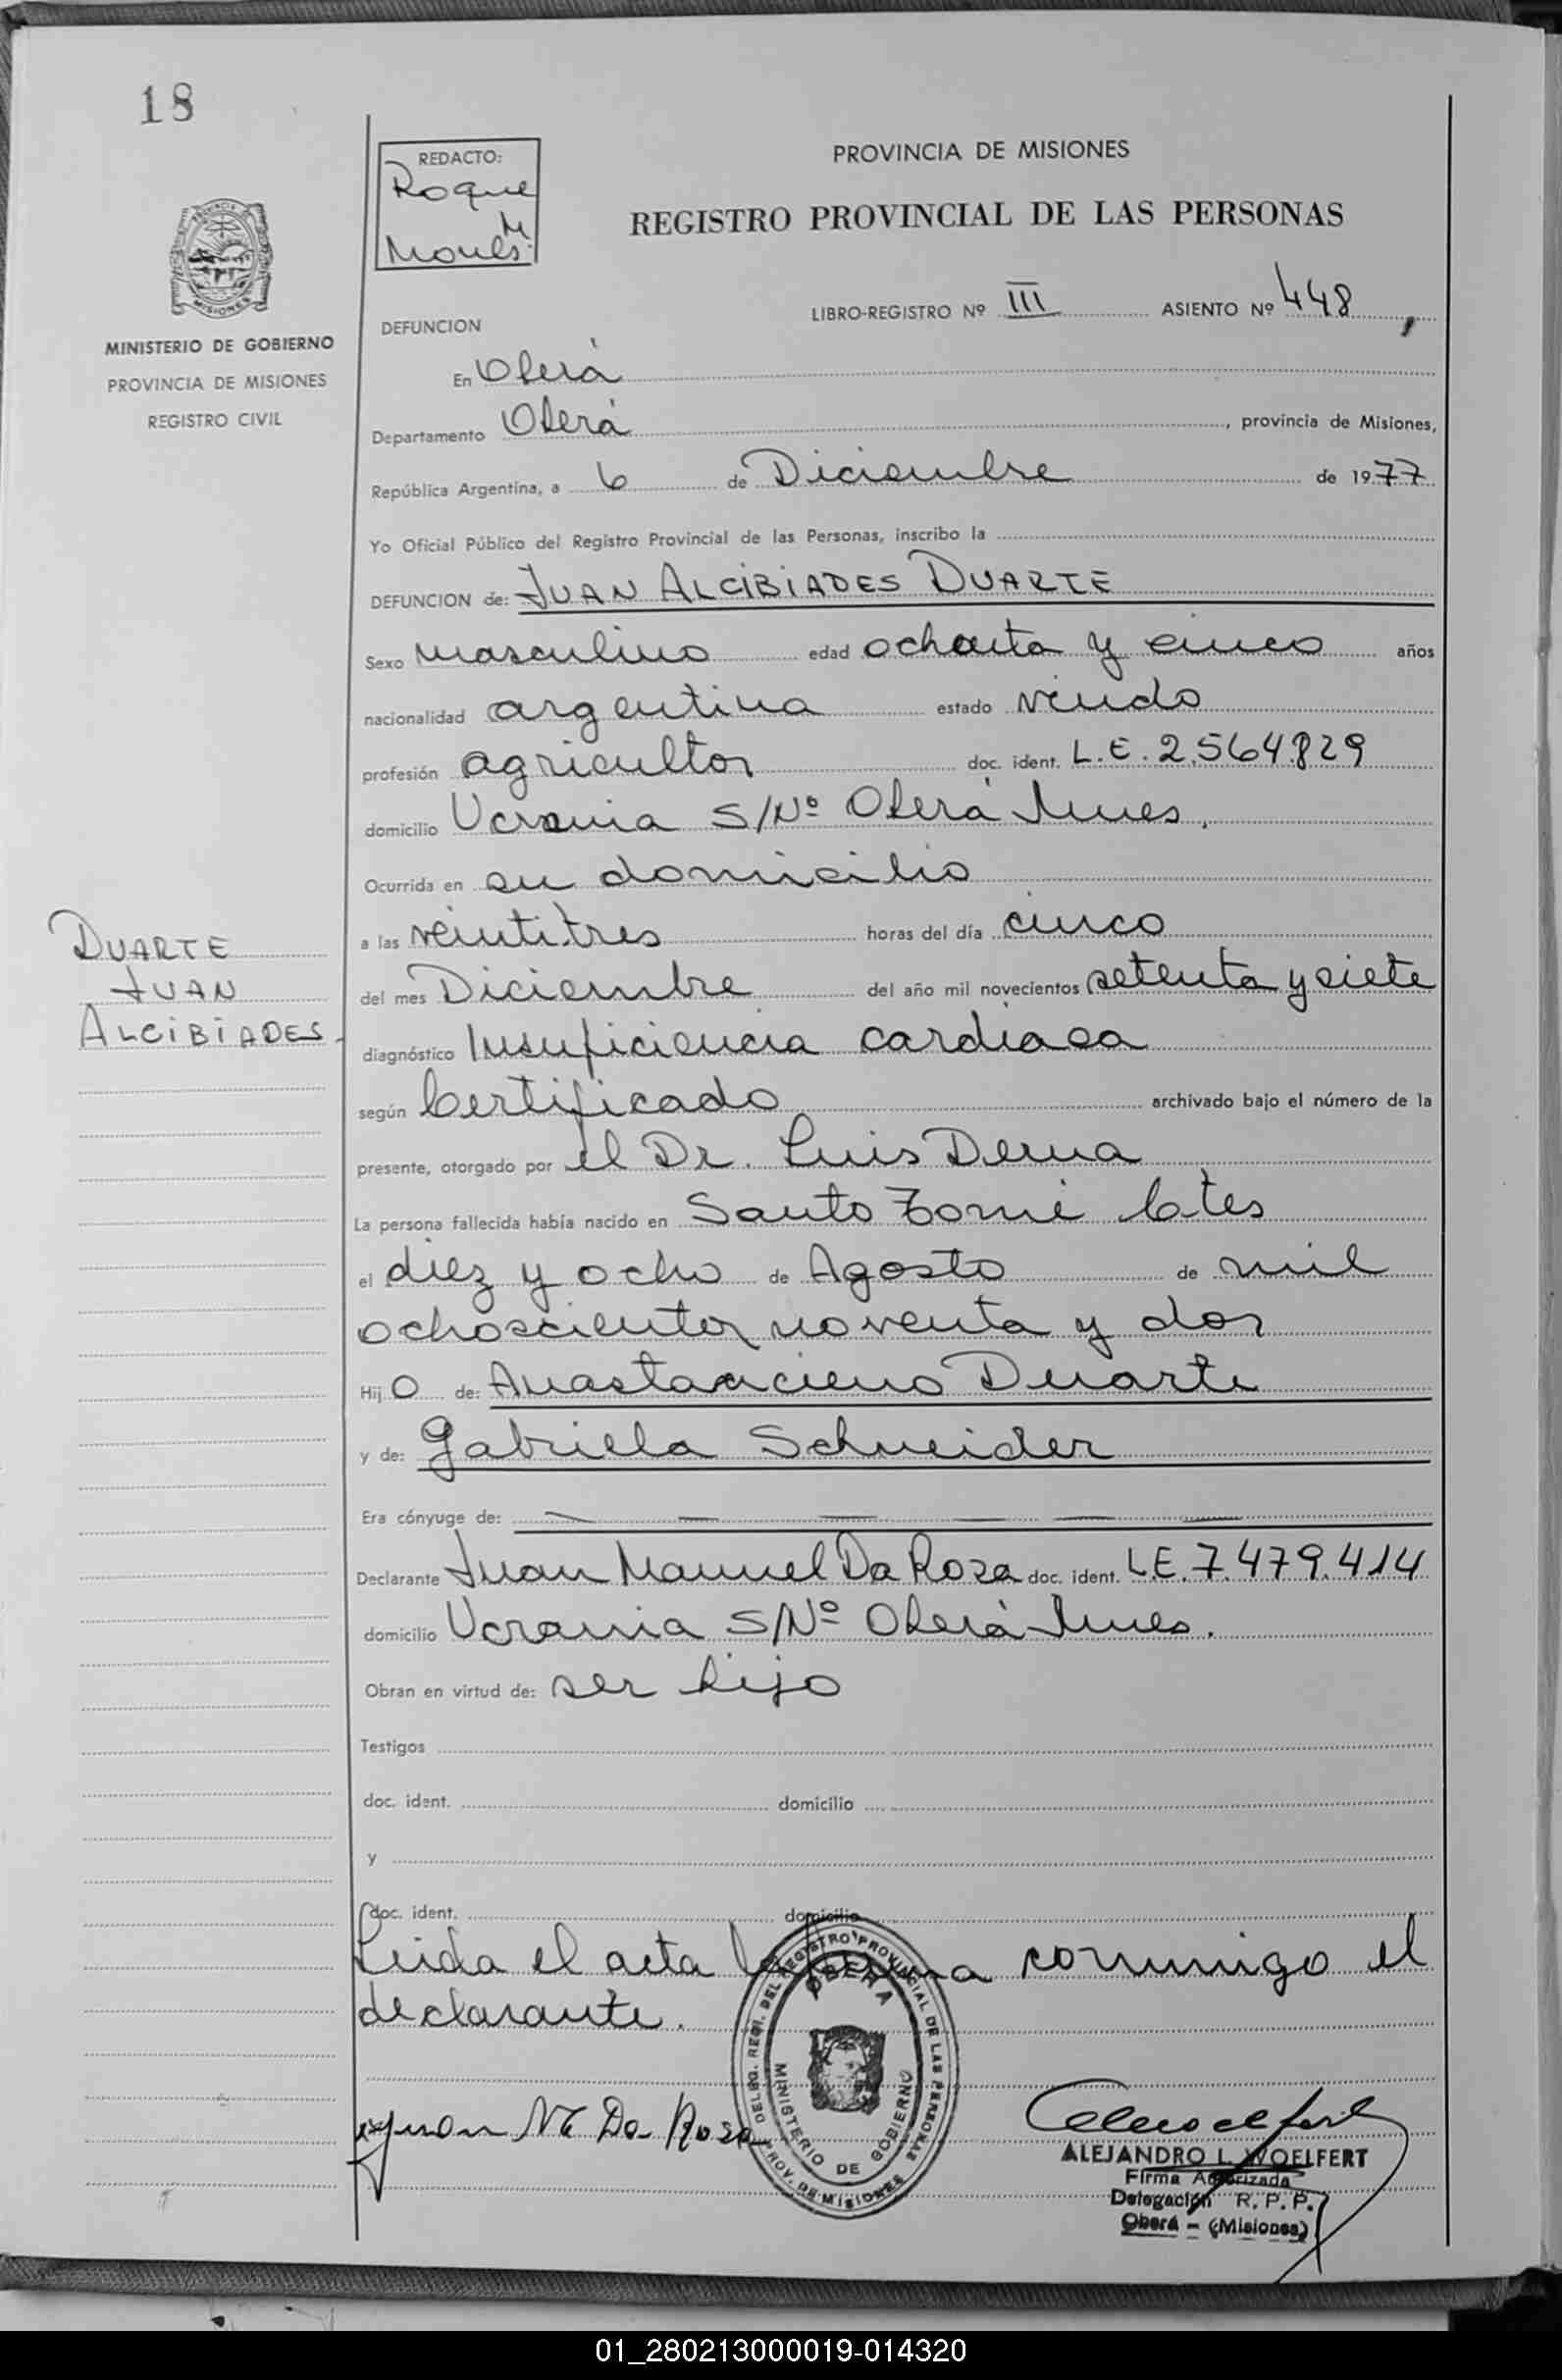 18
REDACTO:
Roque
M
PROVINCIA DE MISIONES
REGISTRO PROVINCIAL DE LAS PERSONAS
MINISTERIO DE GOBIERNO
PROVINCIA DE MISIONES
REGISTRO CIVIL
LIBRO-REGISTRO Nº III ASIENTO Nº 448
DEFUNCION
En Oberá
Departamento Oberá, provincia de Misiones,
República Argentina, a 6 de Diciembre de 1977
Yo Oficial Público del Registro Provincial de las Personas, inscribo la
DEFUNCION de: JUAN ALCIBIADES DUARTE
Sexo masculino edad ochenta y cinco años
nacionalidad argentina estado viudo
profesión agricultor doc. ident. L.E. 2.564.829
domicilio Ucrania S/Nº Oberá Mnes.
Ocurrida en su domicilio
DUARTE
JUAN
ALCIBIADES
a las veintitres horas del día cinco
del mes Diciembre del año mil novecientos setenta y siete
diagnóstico Insuficiencia cardiaca
según Certificado archivado bajo el número de la
presente, otorgado por el Dr. Luis Derna
La persona fallecida había nacido en Santo Tomé Ctes
el diez y ocho de Agosto de mil
ochoscientos noventa y dos
Hijo de: Duarte
y de: Gabriela Schneider
Era cónyuge de:
Declarante Juan Manuel Da Rosa doc. ident. L.E. 7.479.414
domicilio Ucrania S/Nº Oberá Mnes.
Obran en virtud de: ser hijo
Testigos
doc. ident. domicilio
y
doc. ident. domicilio
Leida el acta la firma conmigo el
declarante.
DELEG. REGI. DEL REGISTRO PROVINCIAL DE LAS PERSONAS
OBERA
MINISTERIO DE GOBIERNO
PROV. DE MISIONES
Juan M Da Rosa
ALEJANDRO L. WOELFERT
Firma Autorizada
Delegación R. P. P.
Oberá - (Misiones)
01_280213000019-014320